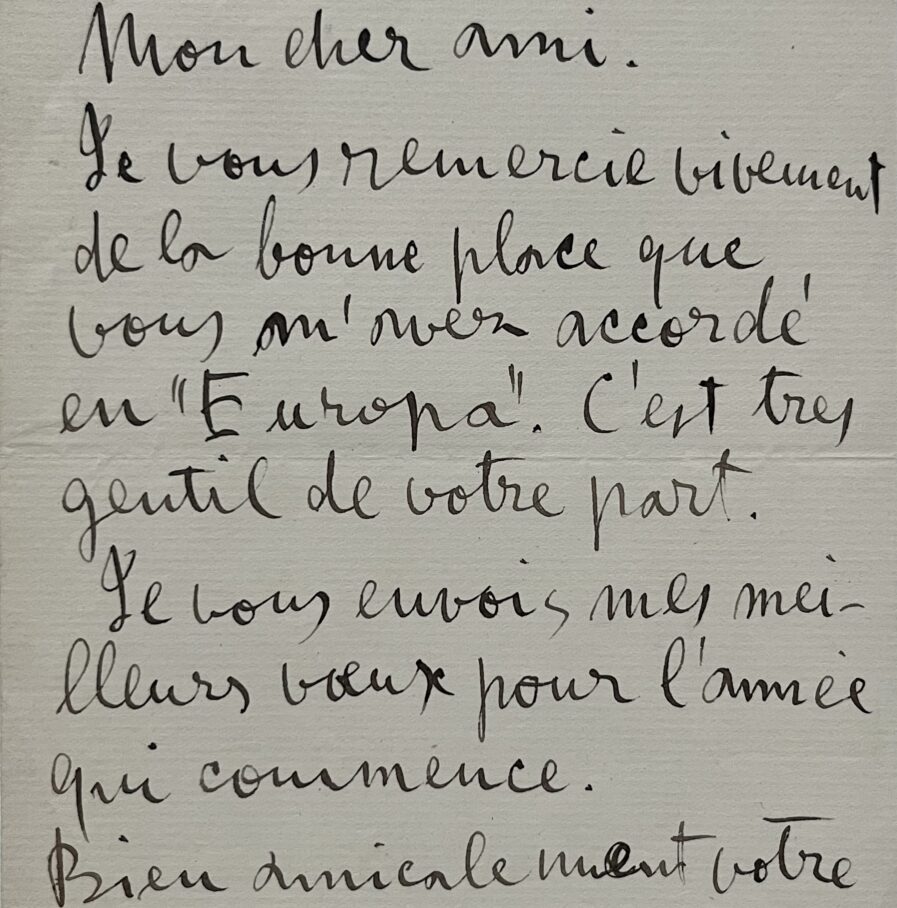 Mon cher ami.
Je vous remercie vivement
de la bonne place que
vous m'avez accordé
en "Europa". C'est tres
gentil de votre part.
Je vous envois mes mei-
lleurs vœux pour l'année
qui commence.
Bien amicalement votre